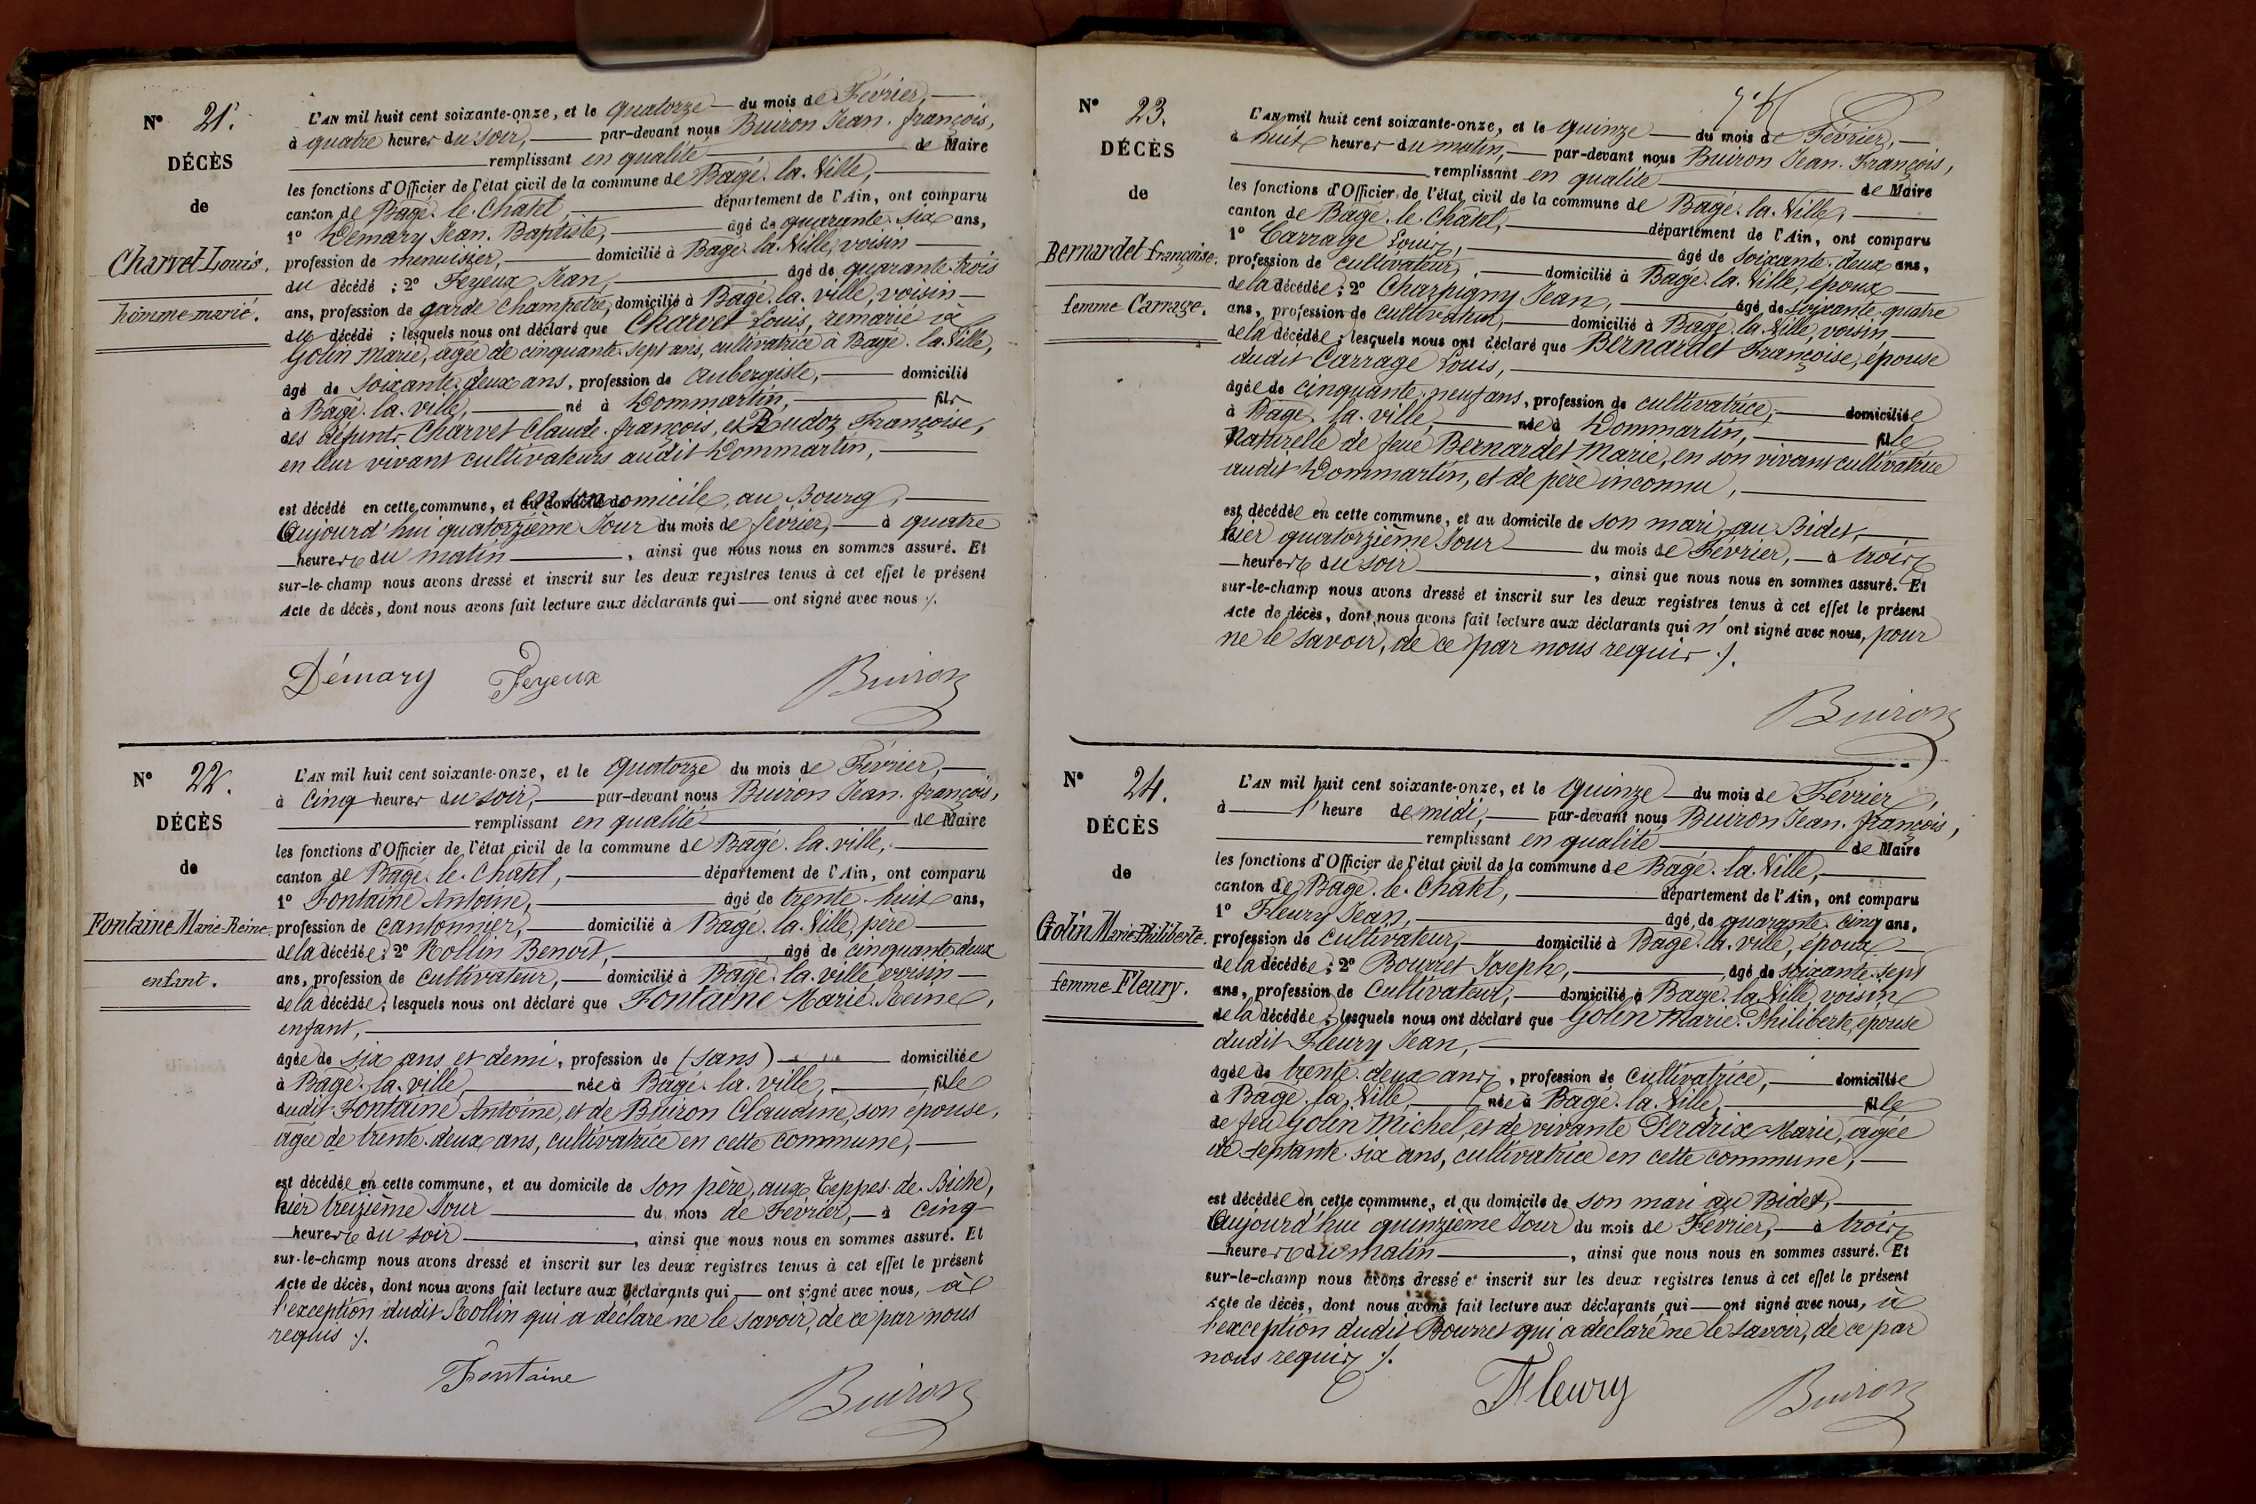 N° 21.
DÉCÈS
de
Charvet Louis.
homme marié.
L'AN mil huit cent soixante-onze, et le quatorze du mois de Février,
à quatre heures du soir, par-devant nous Buiron Jean-françois,
remplissant en qualité de Maire
les fonctions d'Officier de l'état civil de la commune de Bagé-la-Ville,
canton de Bagé-le-Chatel, département de l'Ain, ont comparu
1° Démary Jean-Baptiste, âgé de quarante-six ans,
profession de menuisier, domicilié à Bagé-la-Ville, voisin
du décédé ; 2° Feyeux Jean, âgé de quarante-trois
ans, profession de garde champêtre, domicilié à Bagé-la-ville, voisin
du décédé ; lesquels nous ont déclaré que Charvet Louis, remarié à
Golin Marie, agée de cinquante-sept ans, cultivatrice à Bagé-la-Ville,
âgé de soixante-deux ans, profession de aubergiste, domicilié
à Bagé-la-ville, né à Dommartin, fils
des défunts Charvet Claude-françois, et Rudoz Françoise,
en leur vivant cultivateurs audit Dommartin,
est décédé en cette commune, et en son domicile, au Bourg,
Aujourd'hui quatorzième Jour du mois de février, à quatre
heures du matin, ainsi que nous nous en sommes assuré. Et
sur-le-champ nous avons dressé et inscrit sur les deux registres tenus à cet effet le présent
Acte de décès, dont nous avons fait lecture aux déclarants qui ont signé avec nous ./.
Démary Feyeux Buiron
N° 22.
DÉCÈS
de
Fontaine Marie-Reine.
enfant.
L'AN mil huit cent soixante-onze, et le quatorze du mois de Février,
à cinq heures du soir, par-devant nous Buiron Jean-françois,
remplissant en qualité de Maire
les fonctions d'Officier de l'état civil de la commune de Bagé-la-ville,
canton de Bagé-le-Chatel, département de l'Ain, ont comparu
1° Fontaine Antoine, âgé de trente-huit ans,
profession de cantonnier, domicilié à Bagé-la-Ville, père
de la décédée ; 2° Rollin Benoit, âgé de cinquante-deux
ans, profession de cultivateur, domicilié à Bagé-la-ville voisin
de la décédée ; lesquels nous ont déclaré que Fontaine Marie-Reine,
enfant,
âgée de six ans et demi, profession de (sans) domiciliée
à Bagé-la-ville, née à Bagé-la-ville, fille
dudit Fontaine Antoine, et de Buiron Claudine, son épouse,
agée de trente-deux ans, cultivatrice en cette commune,
est décédée en cette commune, et au domicile de son père, aux Teppes-de-Biche,
hier treizième Jour du mois de Février, à cinq
heures du soir, ainsi que nous nous en sommes assuré. Et
sur-le-champ nous avons dressé et inscrit sur les deux registres tenus à cet effet le présent
Acte de décès, dont nous avons fait lecture aux déclarants qui ont signé avec nous, à
l'exception dudit Rollin qui a déclaré ne le savoir, de ce par nous
requis ./.
Fontaine Buiron
N° 23.
DÉCÈS
de
Bernardet françoise.
femme Carrage.
L'AN mil huit cent soixante-onze, et le quinze du mois de Février,
à huit heures du matin, par-devant nous Buiron Jean-François,
remplissant en qualité de Maire
les fonctions d'Officier de l'état civil de la commune de Bagé-la-Ville,
canton de Bagé-le-Châtel, département de l'Ain, ont comparu
1° Carrage Louis, âgé de soixante-deux ans,
profession de cultivateur, domicilié à Bagé-la-Ville, époux
de la décédée ; 2° Charpigny Jean, âgé de soixante-quatre
ans, profession de cultivateur, domicilié à Bagé-la-Ville, voisin,
de la décédée ; lesquels nous ont déclaré que Bernardet Françoise, épouse
dudit Carrage Louis,
âgée de cinquante-neuf ans, profession de cultivatrice, domiciliée
à Bagé-la-ville, née à Dommartin, fille
Naturelle de feue Bernardet Marie, en son vivant cultivatrice
audit Dommartin, et de père inconnu,
est décédée en cette commune, et au domicile de son mari, au Bidet,
hier quatorzième Jour du mois de Février, à trois
heures du soir, ainsi que nous nous en sommes assuré. Et
sur-le-champ nous avons dressé et inscrit sur les deux registres tenus à cet effet le présent
Acte de décès, dont nous avons fait lecture aux déclarants qui n'ont signé avec nous, pour
ne le savoir, de ce par nous requis ./.
Buiron
N° 24.
DÉCÈS
de
Golin Marie-Philiberte.
femme Fleury.
L'AN mil huit cent soixante-onze, et le quinze du mois de Février,
à l'heure de midi, par-devant nous Buiron Jean-françois,
remplissant en qualité de Maire
les fonctions d'Officier de l'état civil de la commune de Bagé-la-Ville,
canton de Bagé-le-Chatel, département de l'Ain, ont comparu
1° Fleury Jean, âgé de quarante-cinq ans,
profession de cultivateur, domicilié à Bagé-la-ville, époux
de la décédée ; 2° Bourret Joseph, âgé de soixante-sept
ans, profession de Cultivateur, domicilié à Bagé-la-Ville, voisin
de la décédée ; lesquels nous ont déclaré que Golin Marie-Philiberte, épouse
dudit Fleury Jean,
âgée de trente-deux ans, profession de Cultivatrice, domiciliée
à Bagé-la-Ville, née à Bagé-la-Ville, fille
de feu Golin Michel, et de vivante Perdrix Marie, agée
de septante-six ans, cultivatrice en cette commune,
est décédée en cette commune, et au domicile de son mari au Bidet,
Aujourd'hui quinzième Jour du mois de Février, à trois
heures du matin, ainsi que nous nous en sommes assuré. Et
sur-le-champ nous avons dressé et inscrit sur les deux registres tenus à cet effet le présent
Acte de décès, dont nous avons fait lecture aux déclarants qui ont signé avec nous, à
l'exception dudit Bourret qui a déclaré ne le savoir, de ce par
nous requis ./.
Fleury Buiron